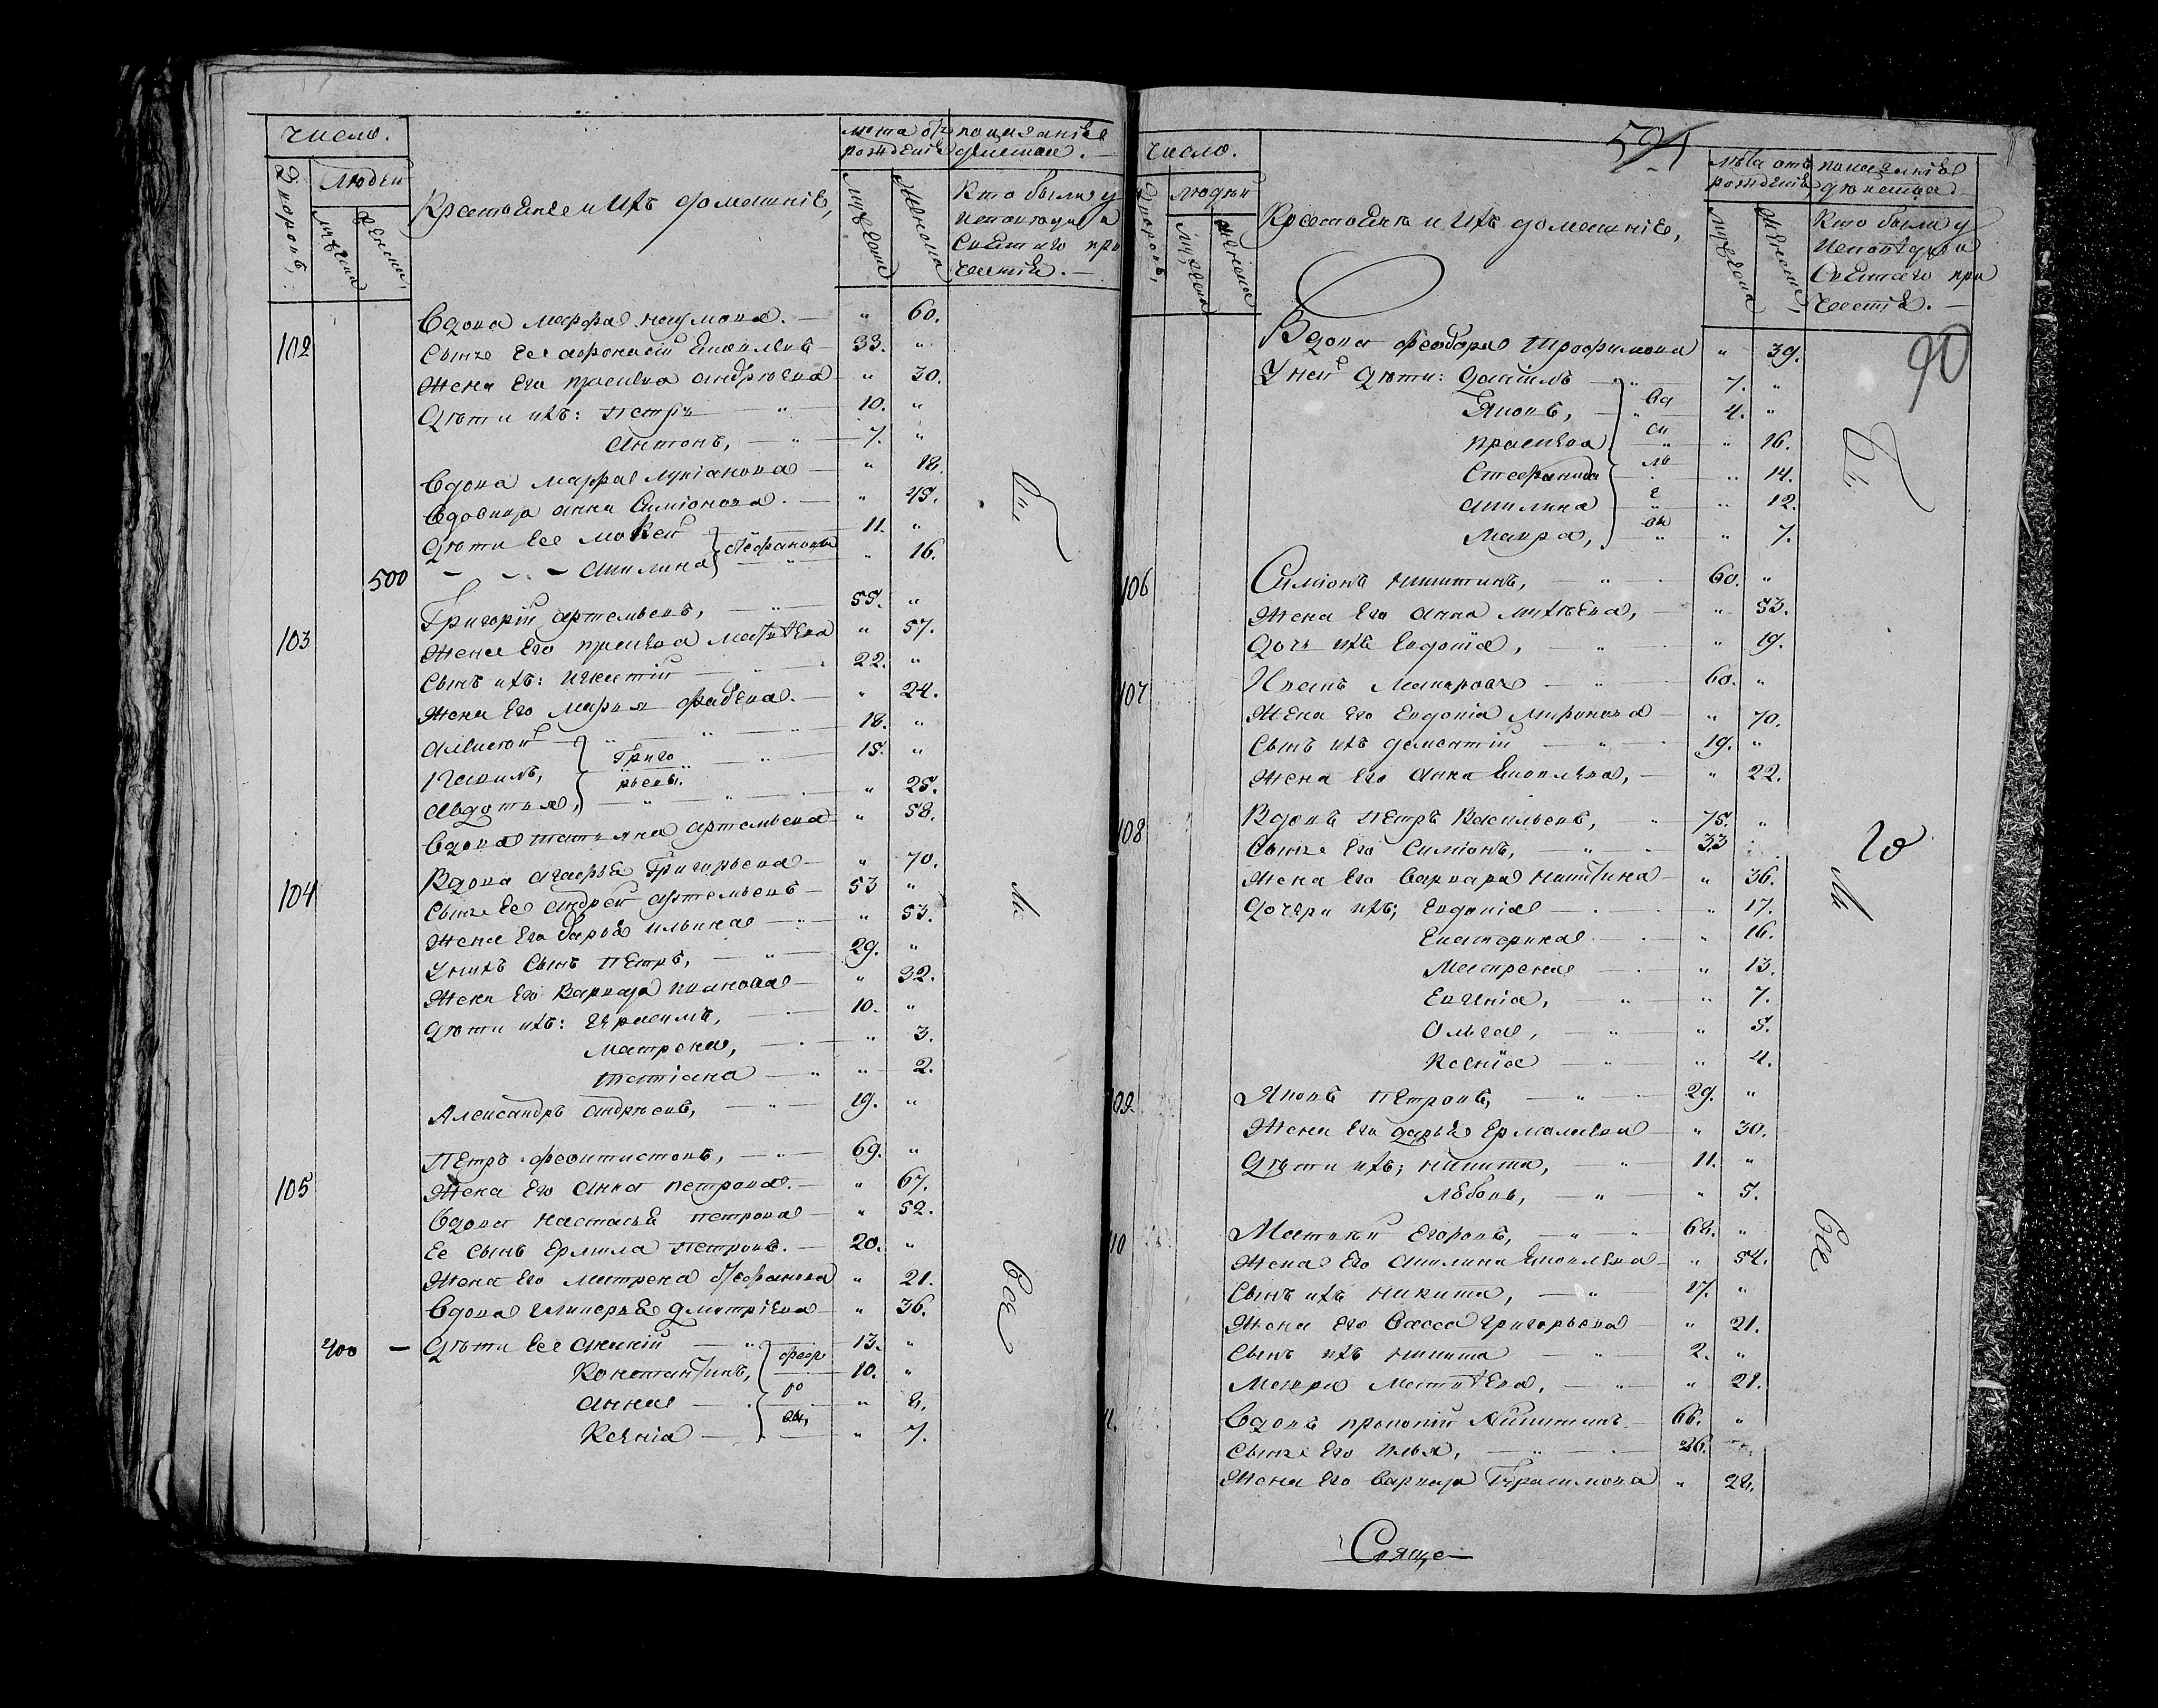 число.
людей
Дворовъ,
мужеска
женска,
Крестьяне и ихъ домашніе,
лета отъ рожденія
мужеска
женска
показаніе действія.
Кто были у исповеди и Святаго причастія.
Вдова марфа наумова. — " 60.
102 Сынъ ее афонасій Яковлевъ 33. "
жена его прасковья андрѣева " 30.
Дѣти ихъ: петръ " 10. "
антонъ, — " 7. "
Вдова марфа лукіанова — " 18.
Вдовица анна Симіонова. — " 45.
Дѣти ее мокей 11. "
стефановы
500 — акилина " 16.
103 Григорій артемьевъ, 55. "
жена его прасковья матвѣева " 57.
Сынъ ихъ: игнатій 22. "
жена его марья фадѣева. — " 24.
алексѣй 18. "
Григорьевы
15. "
авдотья, " 25.
Вдова татьяна артемьева " 58.
104 Вдова агафья Григорьева — " 70.
Сынъ ее андрей артемьевъ — 53 "
жена его дарья ильина — " 53.
У нихъ сынъ петръ, — " 29. "
жена его Варвара иванова — " 32.
Дѣти ихъ: герасимъ, 10. "
матрена, " 3.
татіана — " " 2.
Александръ андрѣевъ, — " 19. "
105 Петръ феоктистовъ, — " 69. "
жена его анна петрова. — " 67.
Вдова настасья петрова — " 52.
Ее сынъ ермила петровъ. — 20. "
жена его матрена стефанова " 21.
Вдова гликерья дмитріева " 36.
400 — Дѣти ее 13. "
Константинъ, 10. "
федоровы,
анна " 8.
Ксенія — " 7.
Бы
ли
все
число.
людей
Дворовъ,
мужеска
женска
Крестьяне и ихъ домашніе,
лѣта отъ рожденія
мужеска
женска
показаніе дѣйствія
Кто были у исповѣди и Святаго причастія.
594
90
Вдова феодора трофимова " 39.
У ней дѣти: даніилъ 7. "
Яковъ, 4. "
прасковья " 16.
Стефанида " 14.
акилина " 12.
мавра, " 7.
106 Симіонъ никитинъ, — " 60. "
жена его анна михѣева, — " 53.
дочь ихъ евдокія, " 19.
107 Иванъ макаровъ — " 60. "
жена его евдокія миронова — " 70.
Сынъ ихъ дементій — " 19. "
жена его анна Яковлева, — " 22.
108 Вдовъ петръ Васильевъ, " 75. "
Сынъ его Симіонъ, — " 33
жена его варвара никитина — " 36.
Дочери ихъ; евдокія — " 17.
екатерина " 16.
матрена " 13.
евгенія, — " " 7.
ольга, — " " 5.
Ксенія — " " 4.
109. Яковъ петровъ, — " 29. "
жена его дарья ермолаева " 30.
Дѣти ихъ; никита, — " 11. "
любовь, — " " 5.
110 Матвѣй егоровъ, — " 68. "
жена его акилина Яковлева — " 54.
Сынъ ихъ никита, — " 27. "
жена его васса григорьева " 21.
Сынъ ихъ никита — " 2. "
Матвѣева, — " " 21.
Вдовъ прокопій никитинъ — 66. "
Сынъ его илья, — " 26. "
жена его варвара Герасимова " 28.
Бы
ли
все
Свяще—